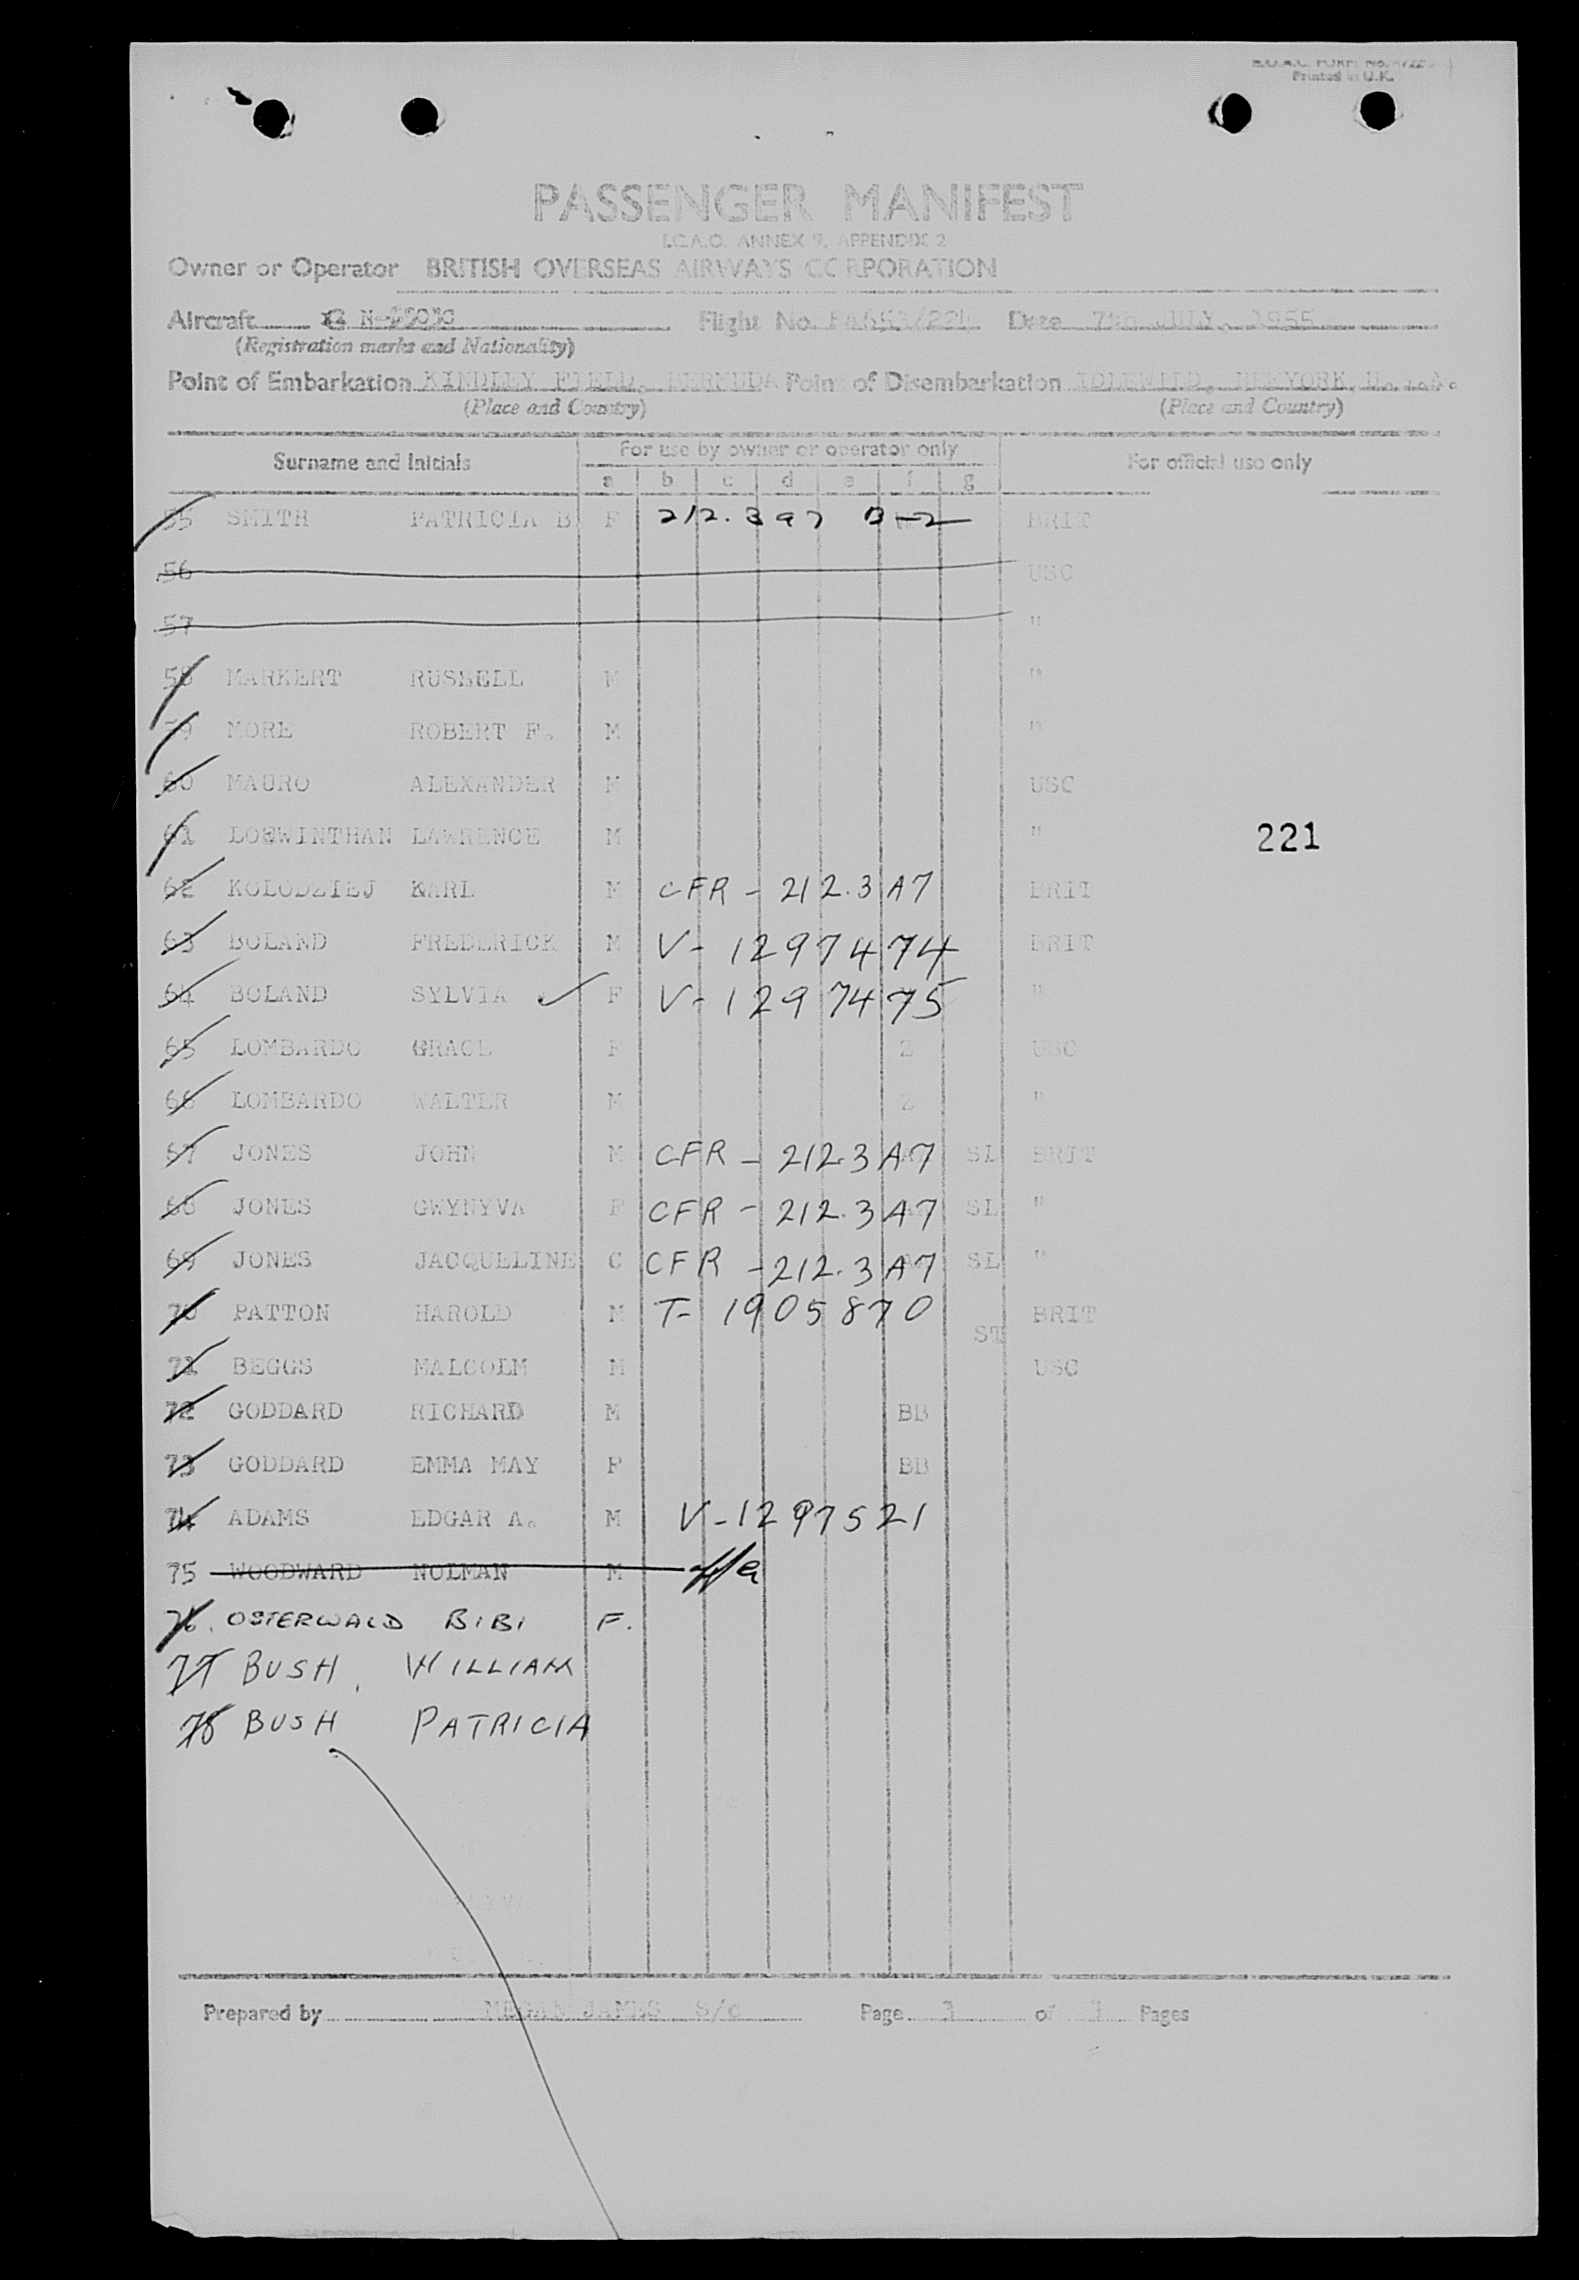 Printed in U.K.
PASSENGER MANIFEST
I.C.A.O. ANNEX 9, APPENDIX 2
Owner or Operator BRITISH OVERSEAS AIRWAYS CORPORATION
Aircraft Flight No. Date JULY, 1955
(Registration marks and Nationality)
Point of Embarkation KINDLEY FIELD, BERMUDA Point of Disembarkation IDLEWILD, NEWYORK
(Place and Country) (Place and Country)
Surname and Initials For use by owner or operator only For official use only
a b c d e f g
55 SMITH PATRICIA B F 212.397 B-2 BRIT
56 USC
57 "
58 MARKERT RUSSELL M "
59 MORE ROBERT F. M "
60 MAURO ALEXANDER M USC
61 LOEWINTHAN LAWRENCE M "
221
62 KOLODZIEJ KARL M CFR - 212.3 A7 BRIT
63 BOLAND FREDERICK M V- 1297474 BRIT
64 BOLAND SYLVIA ✓ F V- 1297475 "
65 LOMBARDO GRACE F Z USC
66 LOMBARDO WALTER M Z "
67 JONES JOHN M CFR - 212.3 A7 SL BRIT
68 JONES GWYNYVA F CFR - 212.3 A7 SL "
69 JONES JACQUELINE C CFR - 212.3 A7 SL "
70 PATTON HAROLD M T- 1905870 ST BRIT
71 BEGGS MALCOLM M USC
72 GODDARD RICHARD M BB
73 GODDARD EMMA MAY F BB
74 ADAMS EDGAR A. M V-1297521
75 WOODWARD NOLMAN M
76. OSTERWALD BIBI F.
77 BUSH, WILLIAM
78 BUSH PATRICIA
Prepared by MEGAN JAMES S/c Page 3 of 3 Pages